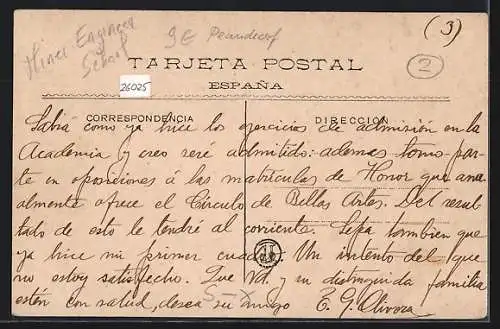 Mines Engineer School
9E
(3)
2
TARJETA POSTAL
ESPAÑA
26025
CORRESPONDENCIA
DIRECCIÓN
Sabrá como ya hice los ejercicios de admisión en la
Academia y creo seré admitido: ademas tomo par-
te en oposiciones á las matriculas de Honor que anu-
almente ofrece el Círculo de Bellas Artes. Del resul-
tado de esto le tendré al corriente. Sepa tambien que
ya hice mi primer cuadro. Un intento del que
no estoy satisfecho. Que Vd. y su distinguida familia
estén con salud, desea su amigo E. G. Olivera